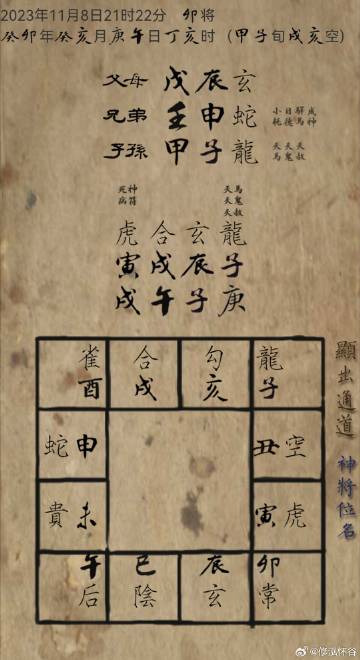 2023年11月8日21时22分 卯将
癸卯年癸亥月庚午日丁亥时（甲子旬戌亥空）
父母 戊辰 玄
兄弟 壬申 蛇
子孫 甲子 龍
成神
驛馬 天赦
日德 天鬼
小耗 天馬
死神
病符
天馬
天鬼
天赦
虎 合 玄 龍
寅 戌 辰 子
戌 午 子 庚
雀 合 勾 龍
酉 戌 亥 子
蛇 申 丑 空
貴 未 寅 虎
午 巳 辰 卯
后 陰 玄 常
顯出通道
神將位名
@修泓怀谷